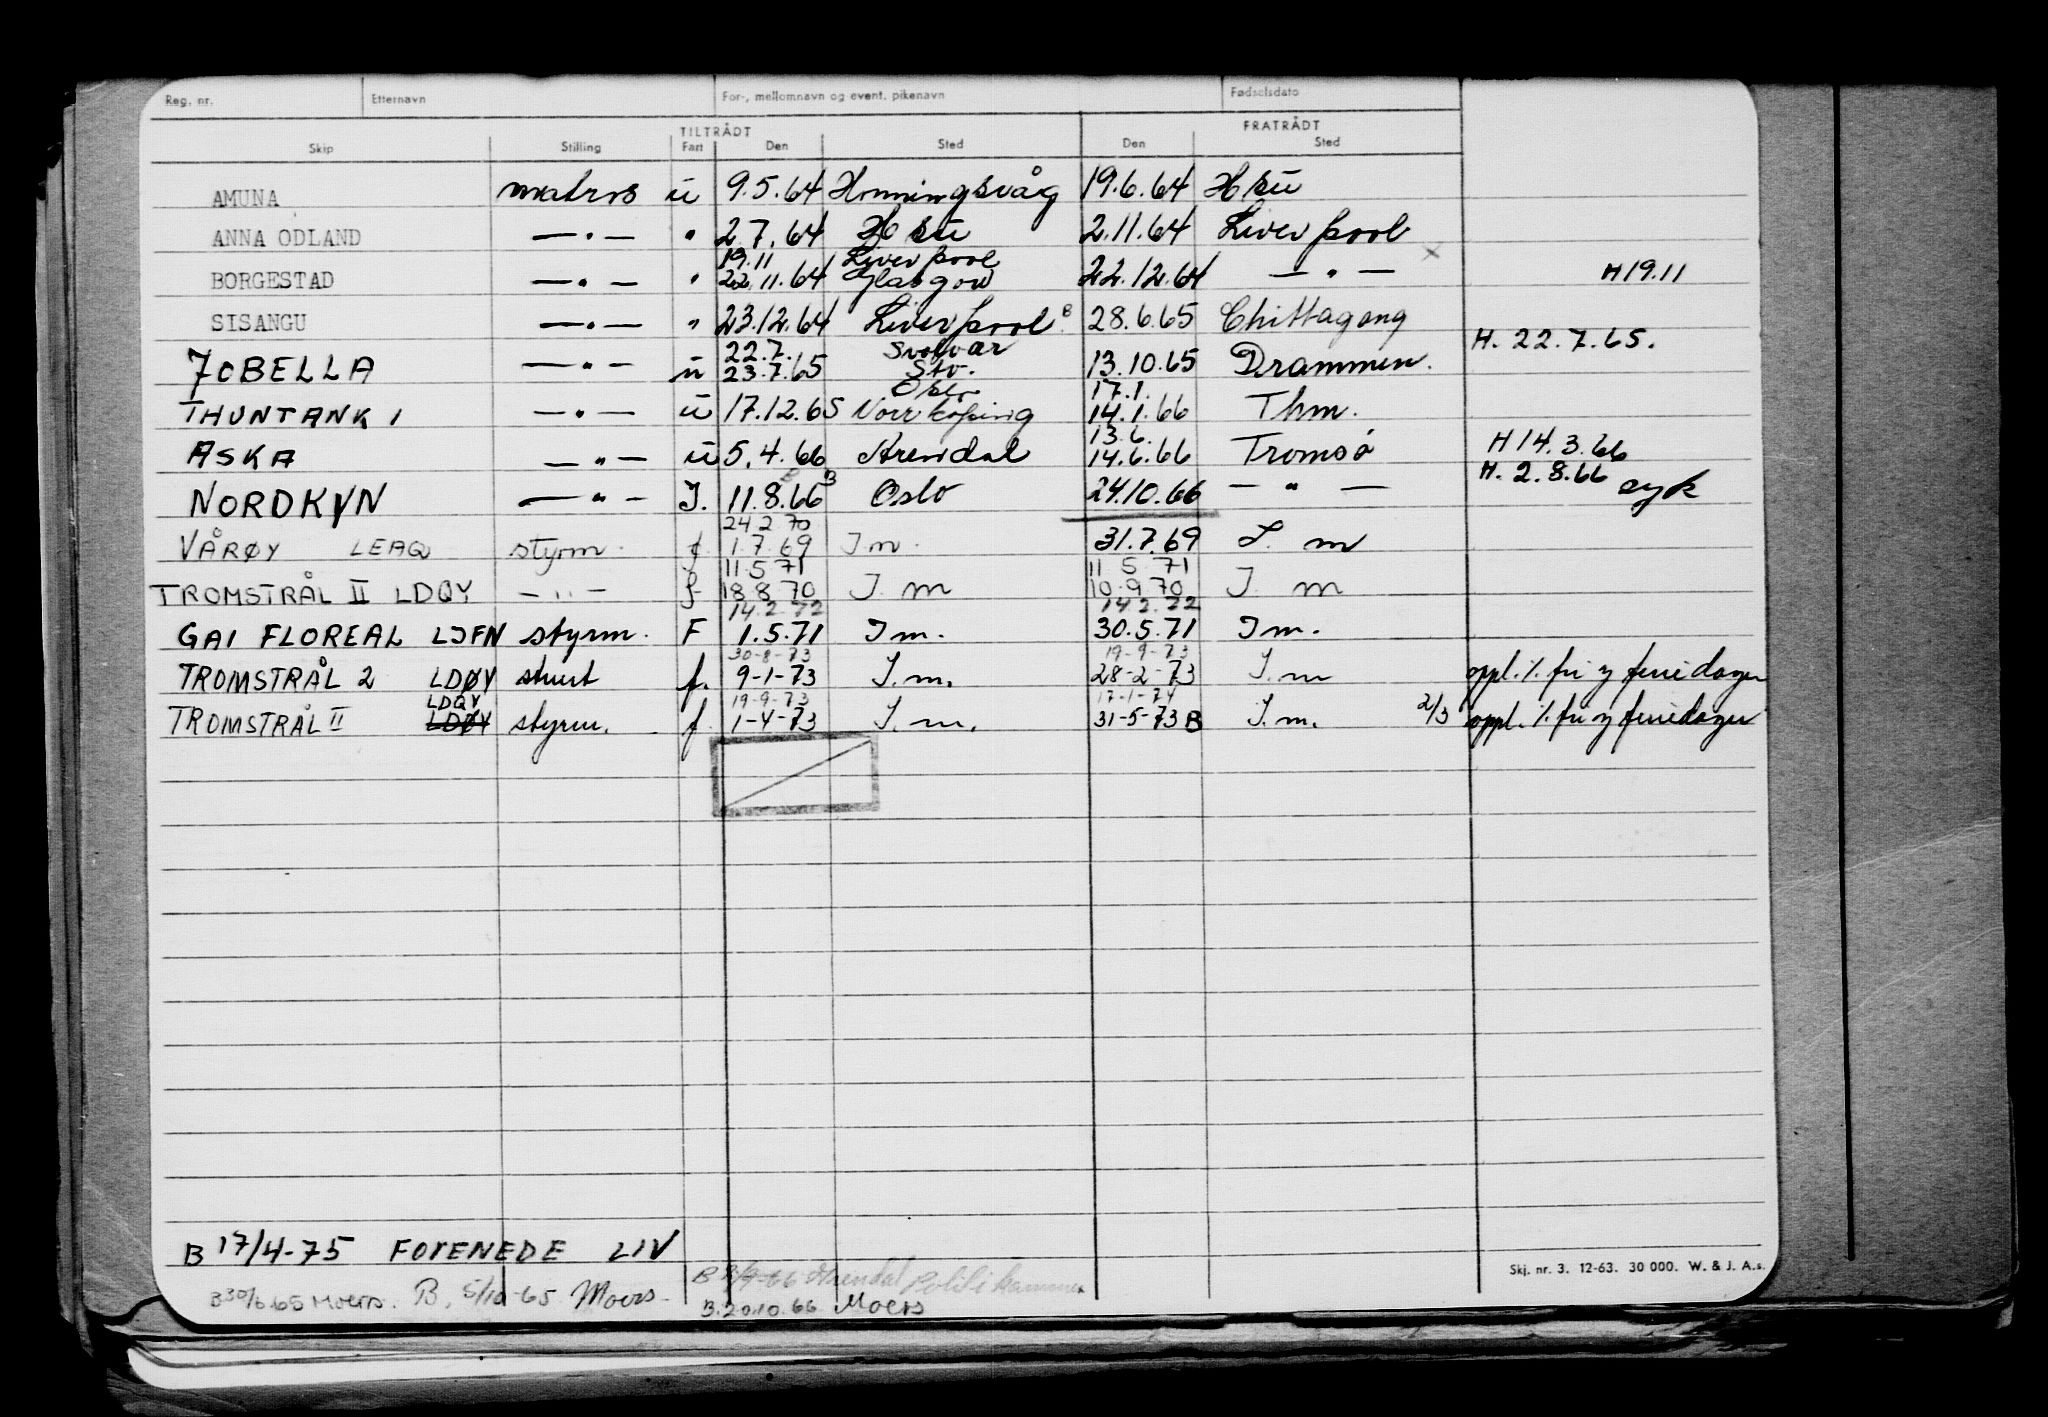 Reg. nr. Etternavn For-, mellomnavn og event. pikenavn Fødselsdato
TILTRÅDT FRATRÅDT
Skip Stilling Fart Den Sted Den Sted
AMUNA matros ü 9.5.64 Honningsvåg 19.6.64 Hsü
ANNA ODLAND — " — " 2.7.64 Hsü 2.11.64 Liverpool
19.11 Liverpool
BORGESTAD — " — " 22.11.64 Glasgow 22.12.64 — " — H 19.11
SISANGU — " — " 23.12.64 Liverpool B 28.6.65 Chittagong
22.7. Svolvær H. 22.7.65.
JOBELLA — " — ü 23.7.65 Sto. 13.10.65 Drammen.
Oslo 17.1.
THUNTANK 1 — " — ü 17.12.65 Norrköping 14.1.66 Thm.
13.6. H 14.3.66
ASKA — " — ü 5.4.66 Arendal 14.6.66 Tromsö
B H. 2.8.66 syk
NORDKYN — " — I. 11.8.66 Oslo 24.10.66 — " —
24 2 70
VÅRØY LEAQ styrm. f 1.7.69 I m. 31.7.69 I. m
11 5 71 11 5 71
TROMSTRÅL II LDQY — " — f 18 8 70 I. m 10-9 70 I. m
14.2.72 14 2.72
GAI FLOREAL LJFN styrm. F 1.5.71 I m. 30.5.71 I m.
30-8-73 19-9-73
TROMSTRÅL 2 LDØY f. 9-1-73 I.m. 28-2-73 I.m oppl. %. fri og feriedager
LDQY 19-9-73 17-1-74
TROMSTRÅL II LDØY styrm. f 1-4-73 I.m. 31-5-73 B I.m. 2/3 oppl. %. fri og feriedager
B 17/4-75 FORENEDE LIV
Skj. nr. 3. 12-63. 30 000. W. & J. A.s.
B 30/6 65 Moers. B. 5/10-65 Moers. Arendal Politikammer
B. 20.10.66 Moers